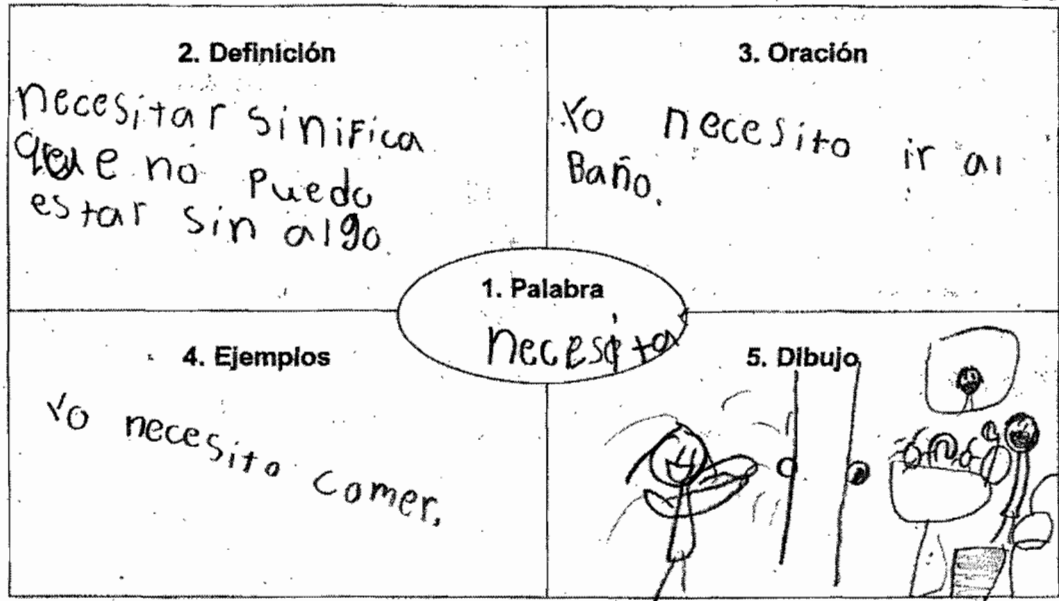 2. Definición
necesitar sinifica
que no puedo
estar sin algo.
3. Oración
Yo necesito ir al
Baño.
1. Palabra
necesita
4. Ejemplos
Yo necesito comer.
5. Dibujo